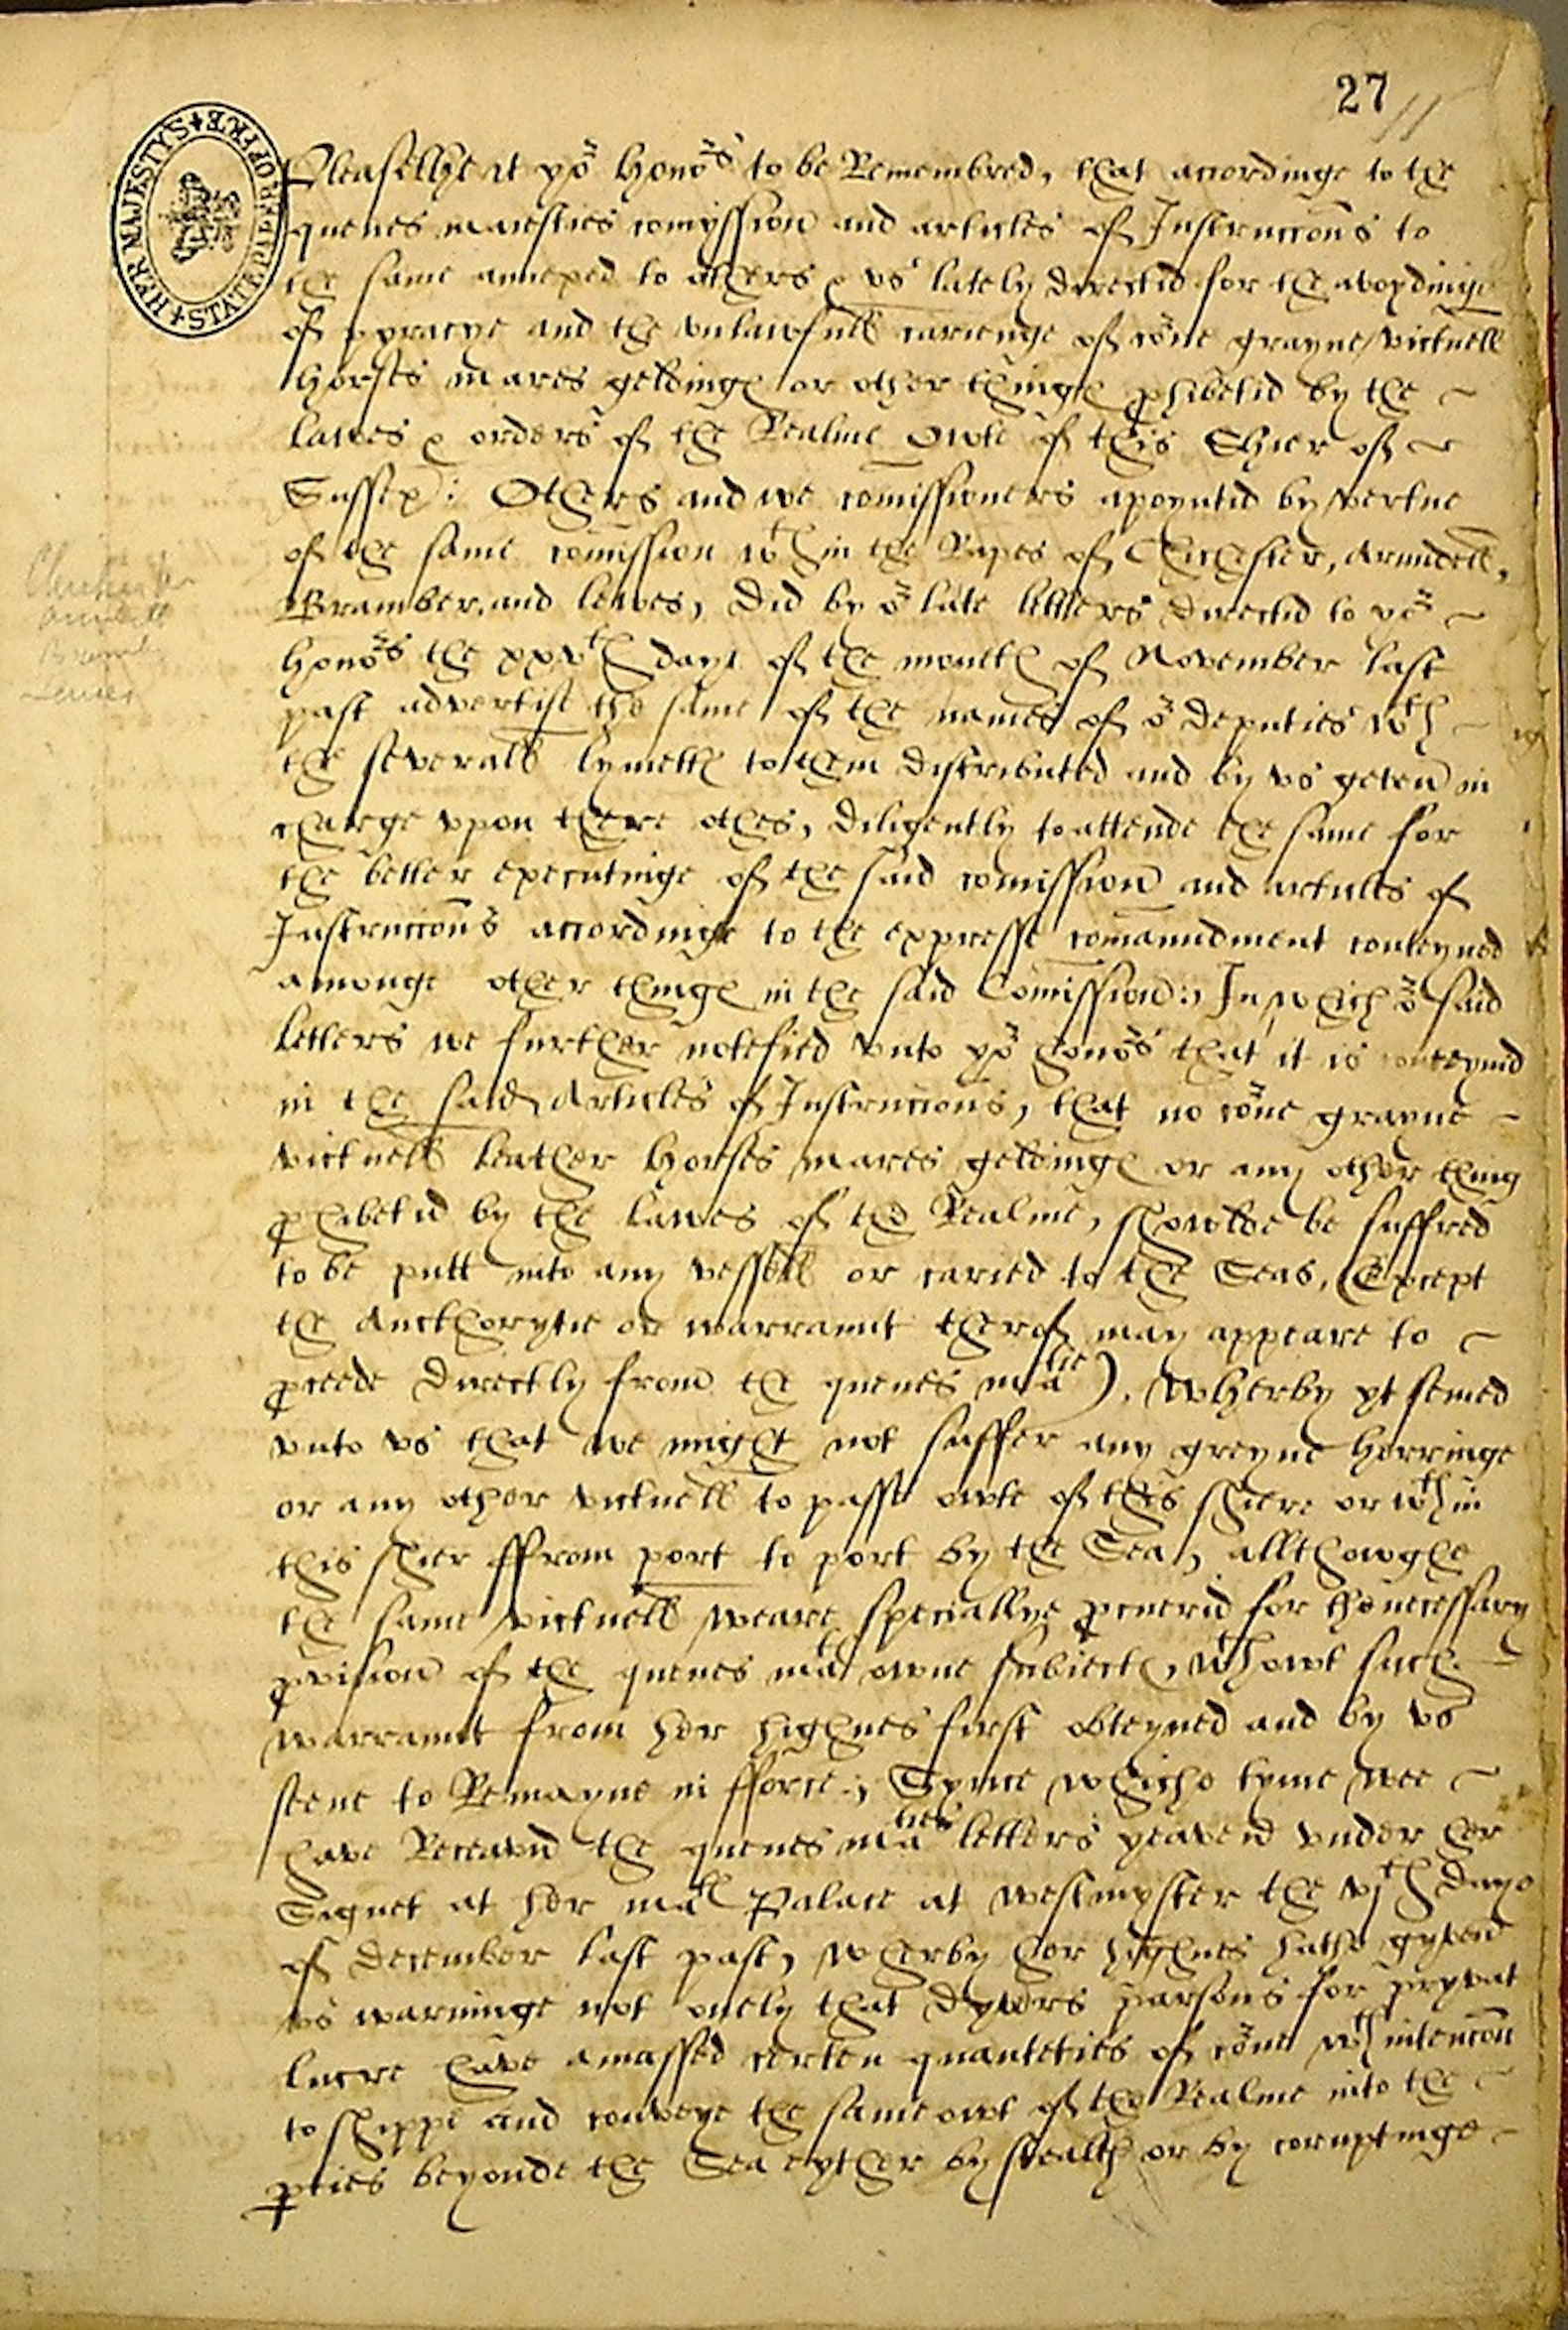 27
HER MAJESTY'S STATE PAPER OFFICE
Pleasethe it yor honors to be Remembred, that accordinge to the
quenes maiesties comyssion and articles of Instruccons to
the same annexed to others & vs lately directid for the avoydinge
of pyracye and the vnlawfull carienge of corne grayne victuell
horses mares geldinges or other thinges phibetid by the
lawes & orders of the Realme owte of this Shier of
Sussex: Others and we comissioners apoyntid by vertue
of the same comission wthin the Rapes of Chichester, Arundell,
Bramber, and lewes, Did by or late letters directid to yor
Chichester
Arundell
Bramb
Lewes
honors the xxvth daye of the moneth of November last
past advertise the same of the names of or deputies wth
the severall lymetts to them distributed and by vs geven in
charge vpon there othes, diligently to attende the same for
the better executinge of the said comission and articles of
Instruccons accordinge to the expresse comaundment conteyned
amonge other thinges in the said Comission:, In which or said
letters we further notefied vnto yor honors that it is conteynid
in the said Articles of Instruccions, that no corne grayne
victuell leather horses mares geldinges or any other thing
phibetid by the lawes of the Realme, showlde be suffred
to be putt into any vessell or caried to the Seas, (Except
the aucthorytie or warraunt therof may appeare to
pcede directly from the quenes matie). Wherby yt semed
vnto vs that we might not suffer any greyne herringe
or any other victuell to passe owte of this shiere or wthin
this shier ffrom port to port by the Sea, allthowghe
the same victuell weare speciallye pcuerid for the necessary
pvision of the quenes mats owne subiects, wthowt such
warraunt from her highnes first obteyned and by vs
seene to Remayne in fforce:, Synce whiche tyme wee
have Receavid the quenes maties letters yeavend vnder her
Signet at her mats Palace at westmyster the vjth daye
of december last past, wherby her highnes hathe gyven
vs warninge not onely that dyvers parsons for pryvat
lucre have amassed certen quanteties of corne wth intencon
to shippe and conveye the same owt of the Realme into the
pties beyonde the Sea eyther by stealth or by coruptinge